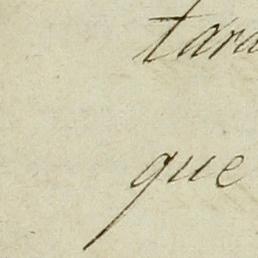 tara
que